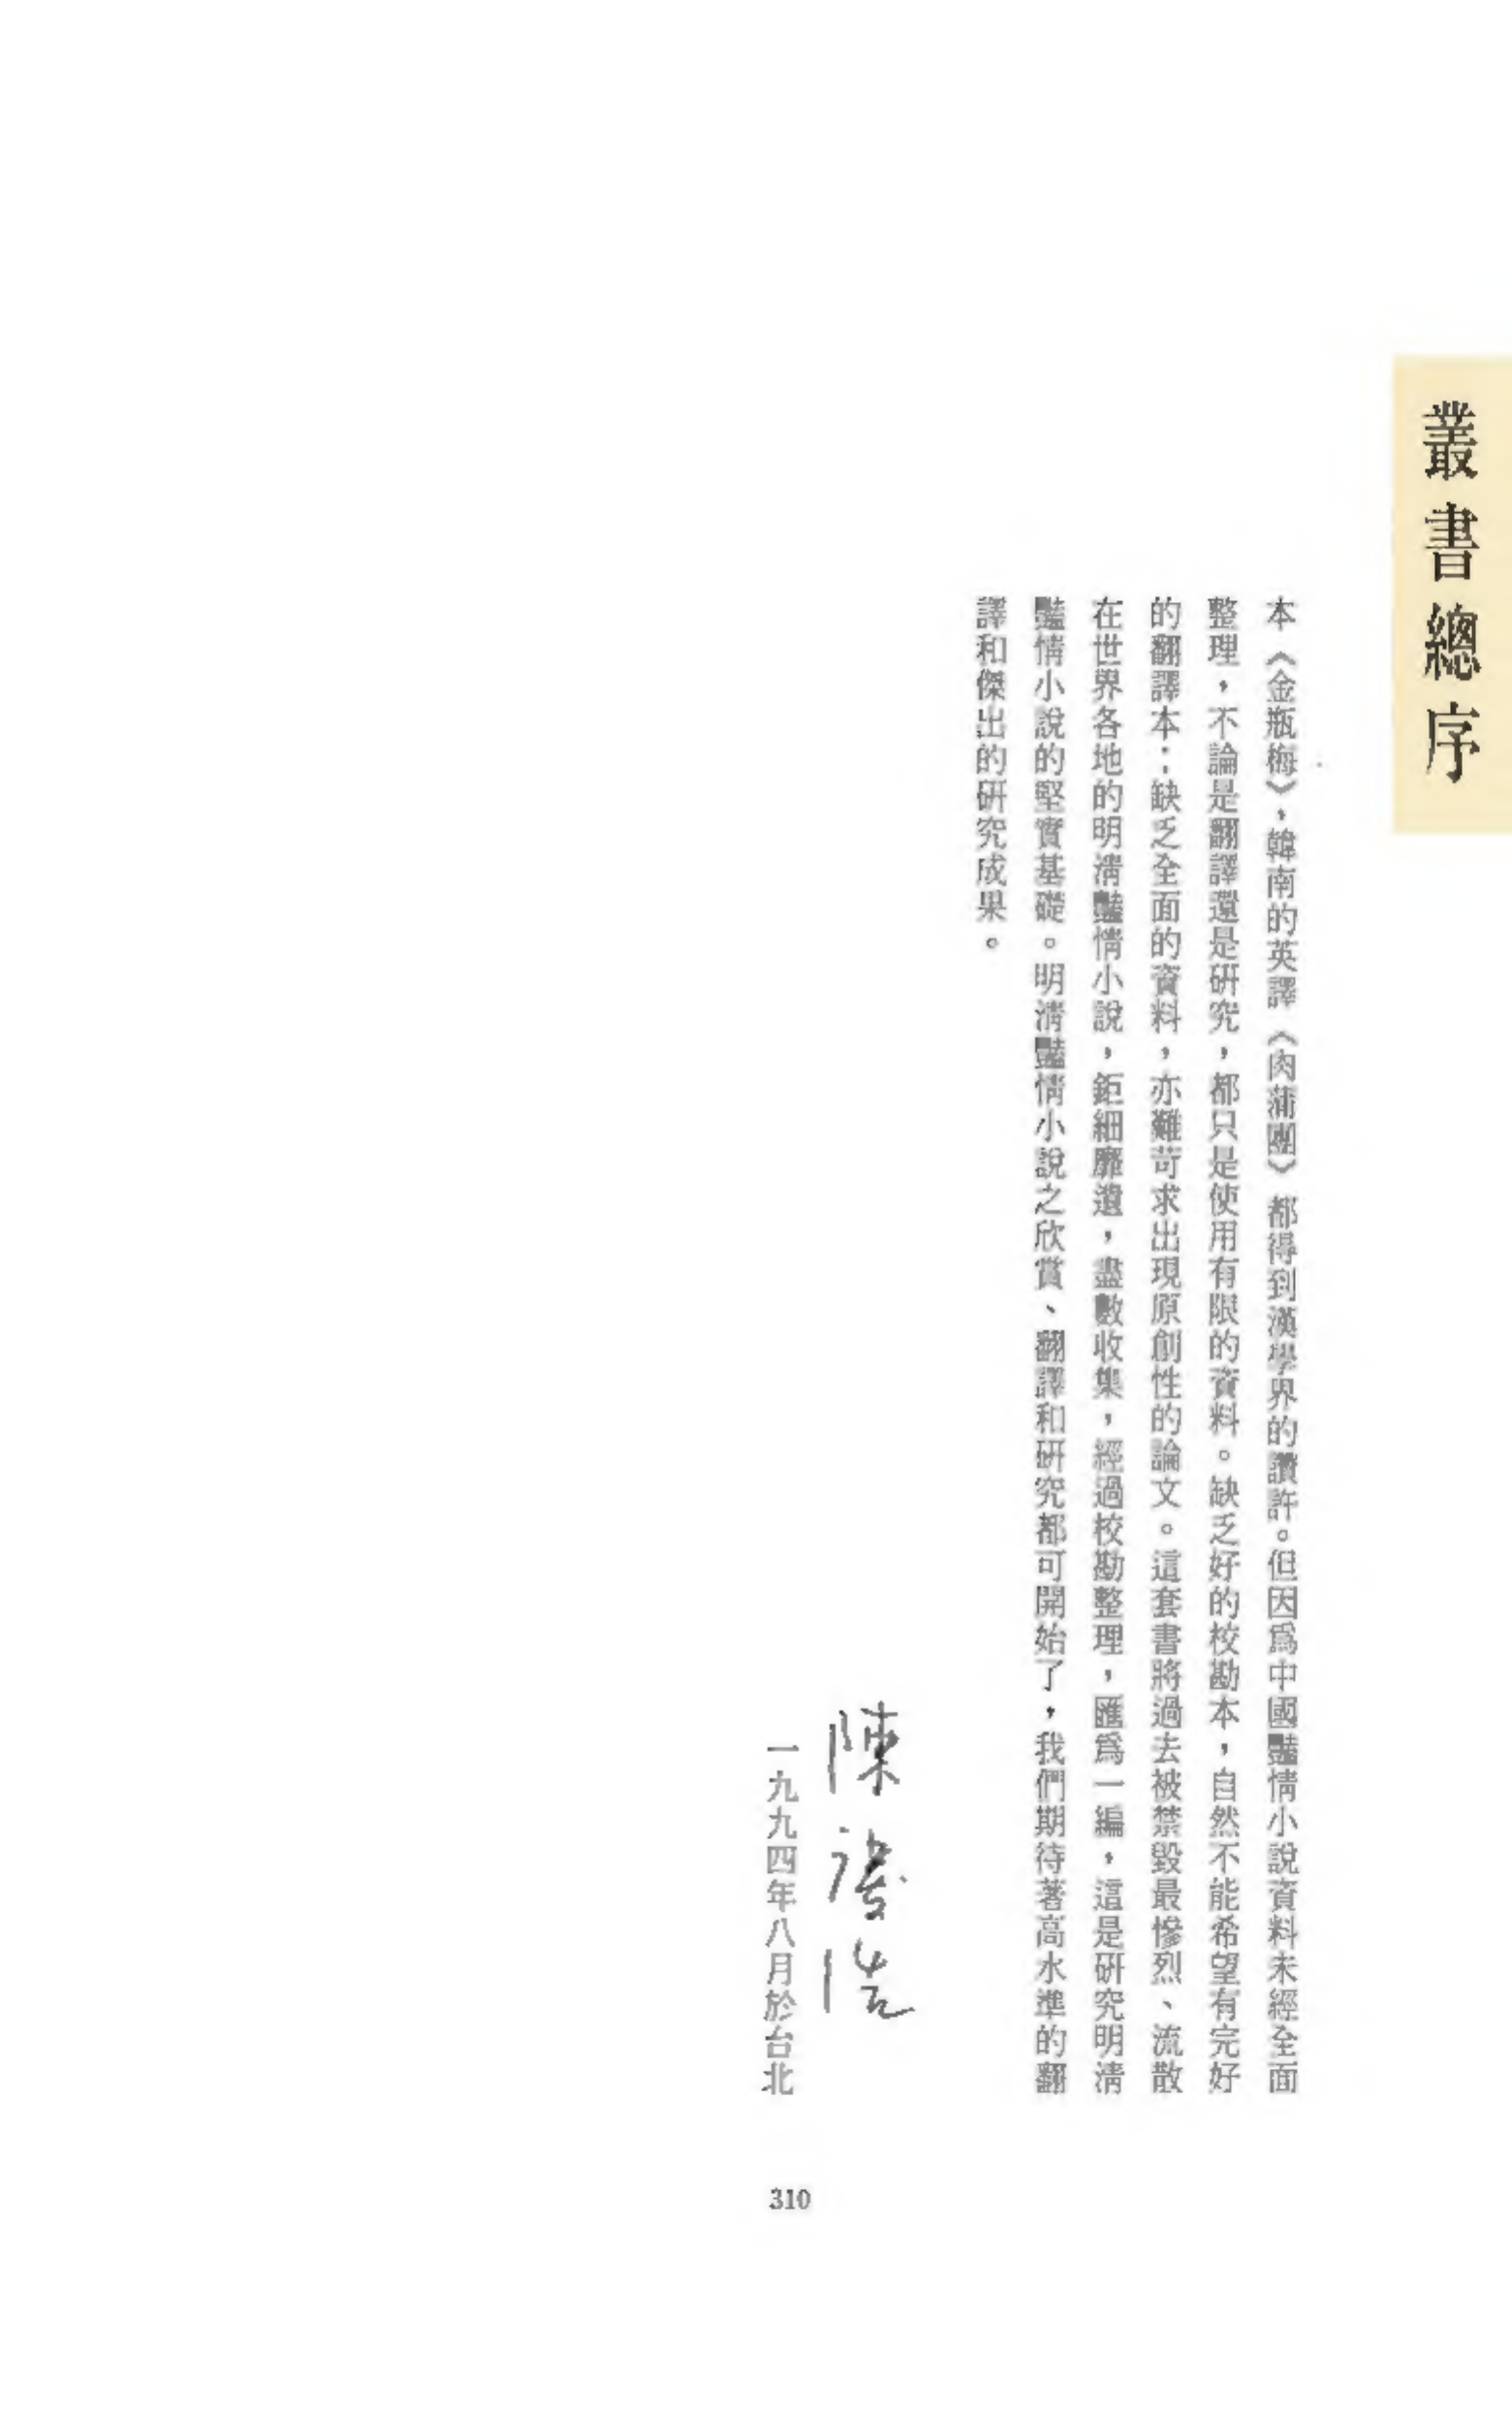 叢書總序
本《金瓶梅》，韓南的英譯《肉蒲團》都得到漢學界的讚許。但因爲中國豔情小說資料未經全面
整理，不論是翻譯還是研究，都只是使用有限的資料。缺乏好的校勘本，自然不能希望有完好
的翻譯本；缺乏全面的資料，亦難苛求出現原創性的論文。這套書將過去被禁毀最慘烈、流散
在世界各地的明清豔情小說，鉅細靡遺，盡數收集，經過校勘整理，匯爲一編，這是研究明清
豔情小說的堅實基礎。明清豔情小說之欣賞、翻譯和研究都可開始了，我們期待著高水準的翻
譯和傑出的研究成果。
陳
一九九四年八月於台北
310